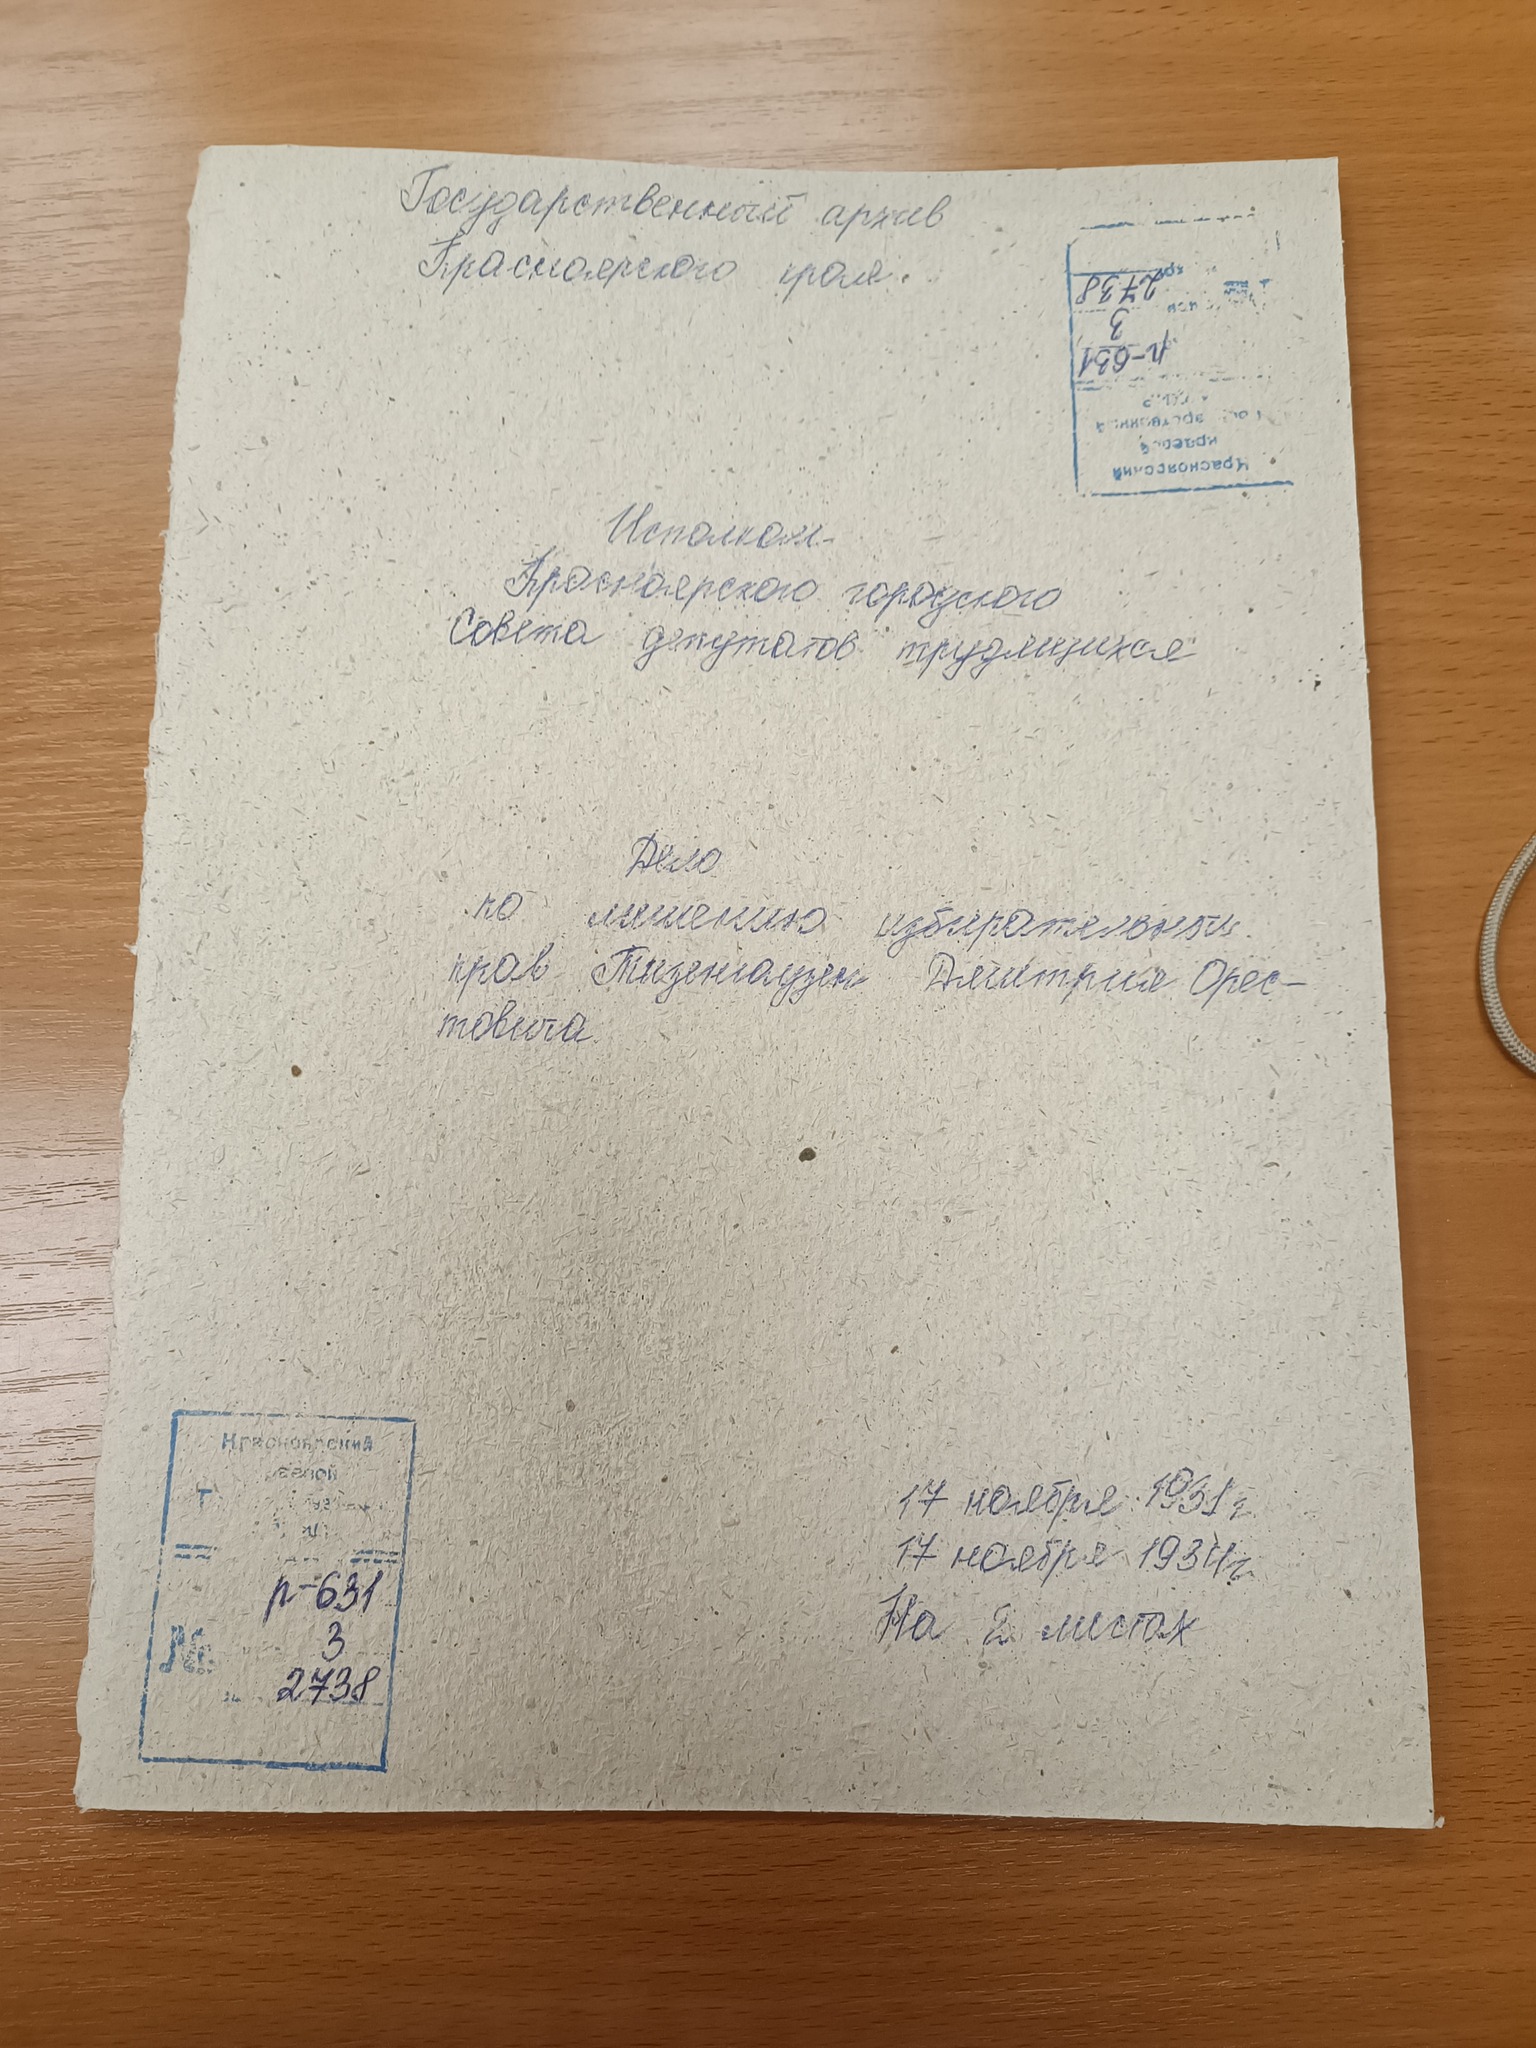 Государственный архив
Красноярского края.
Красноярский
краевой
р-631
3
2738
Исполком
Красноярского городского
Совета депутатов трудящихся
Дело
по лишению избирательных
прав Тизенгаузен Дмитрия Орес-
товича
17 ноября 1931 г.
17 ноября 1934 г.
На 2 листах
Красноярский
р-631
№
3
2738